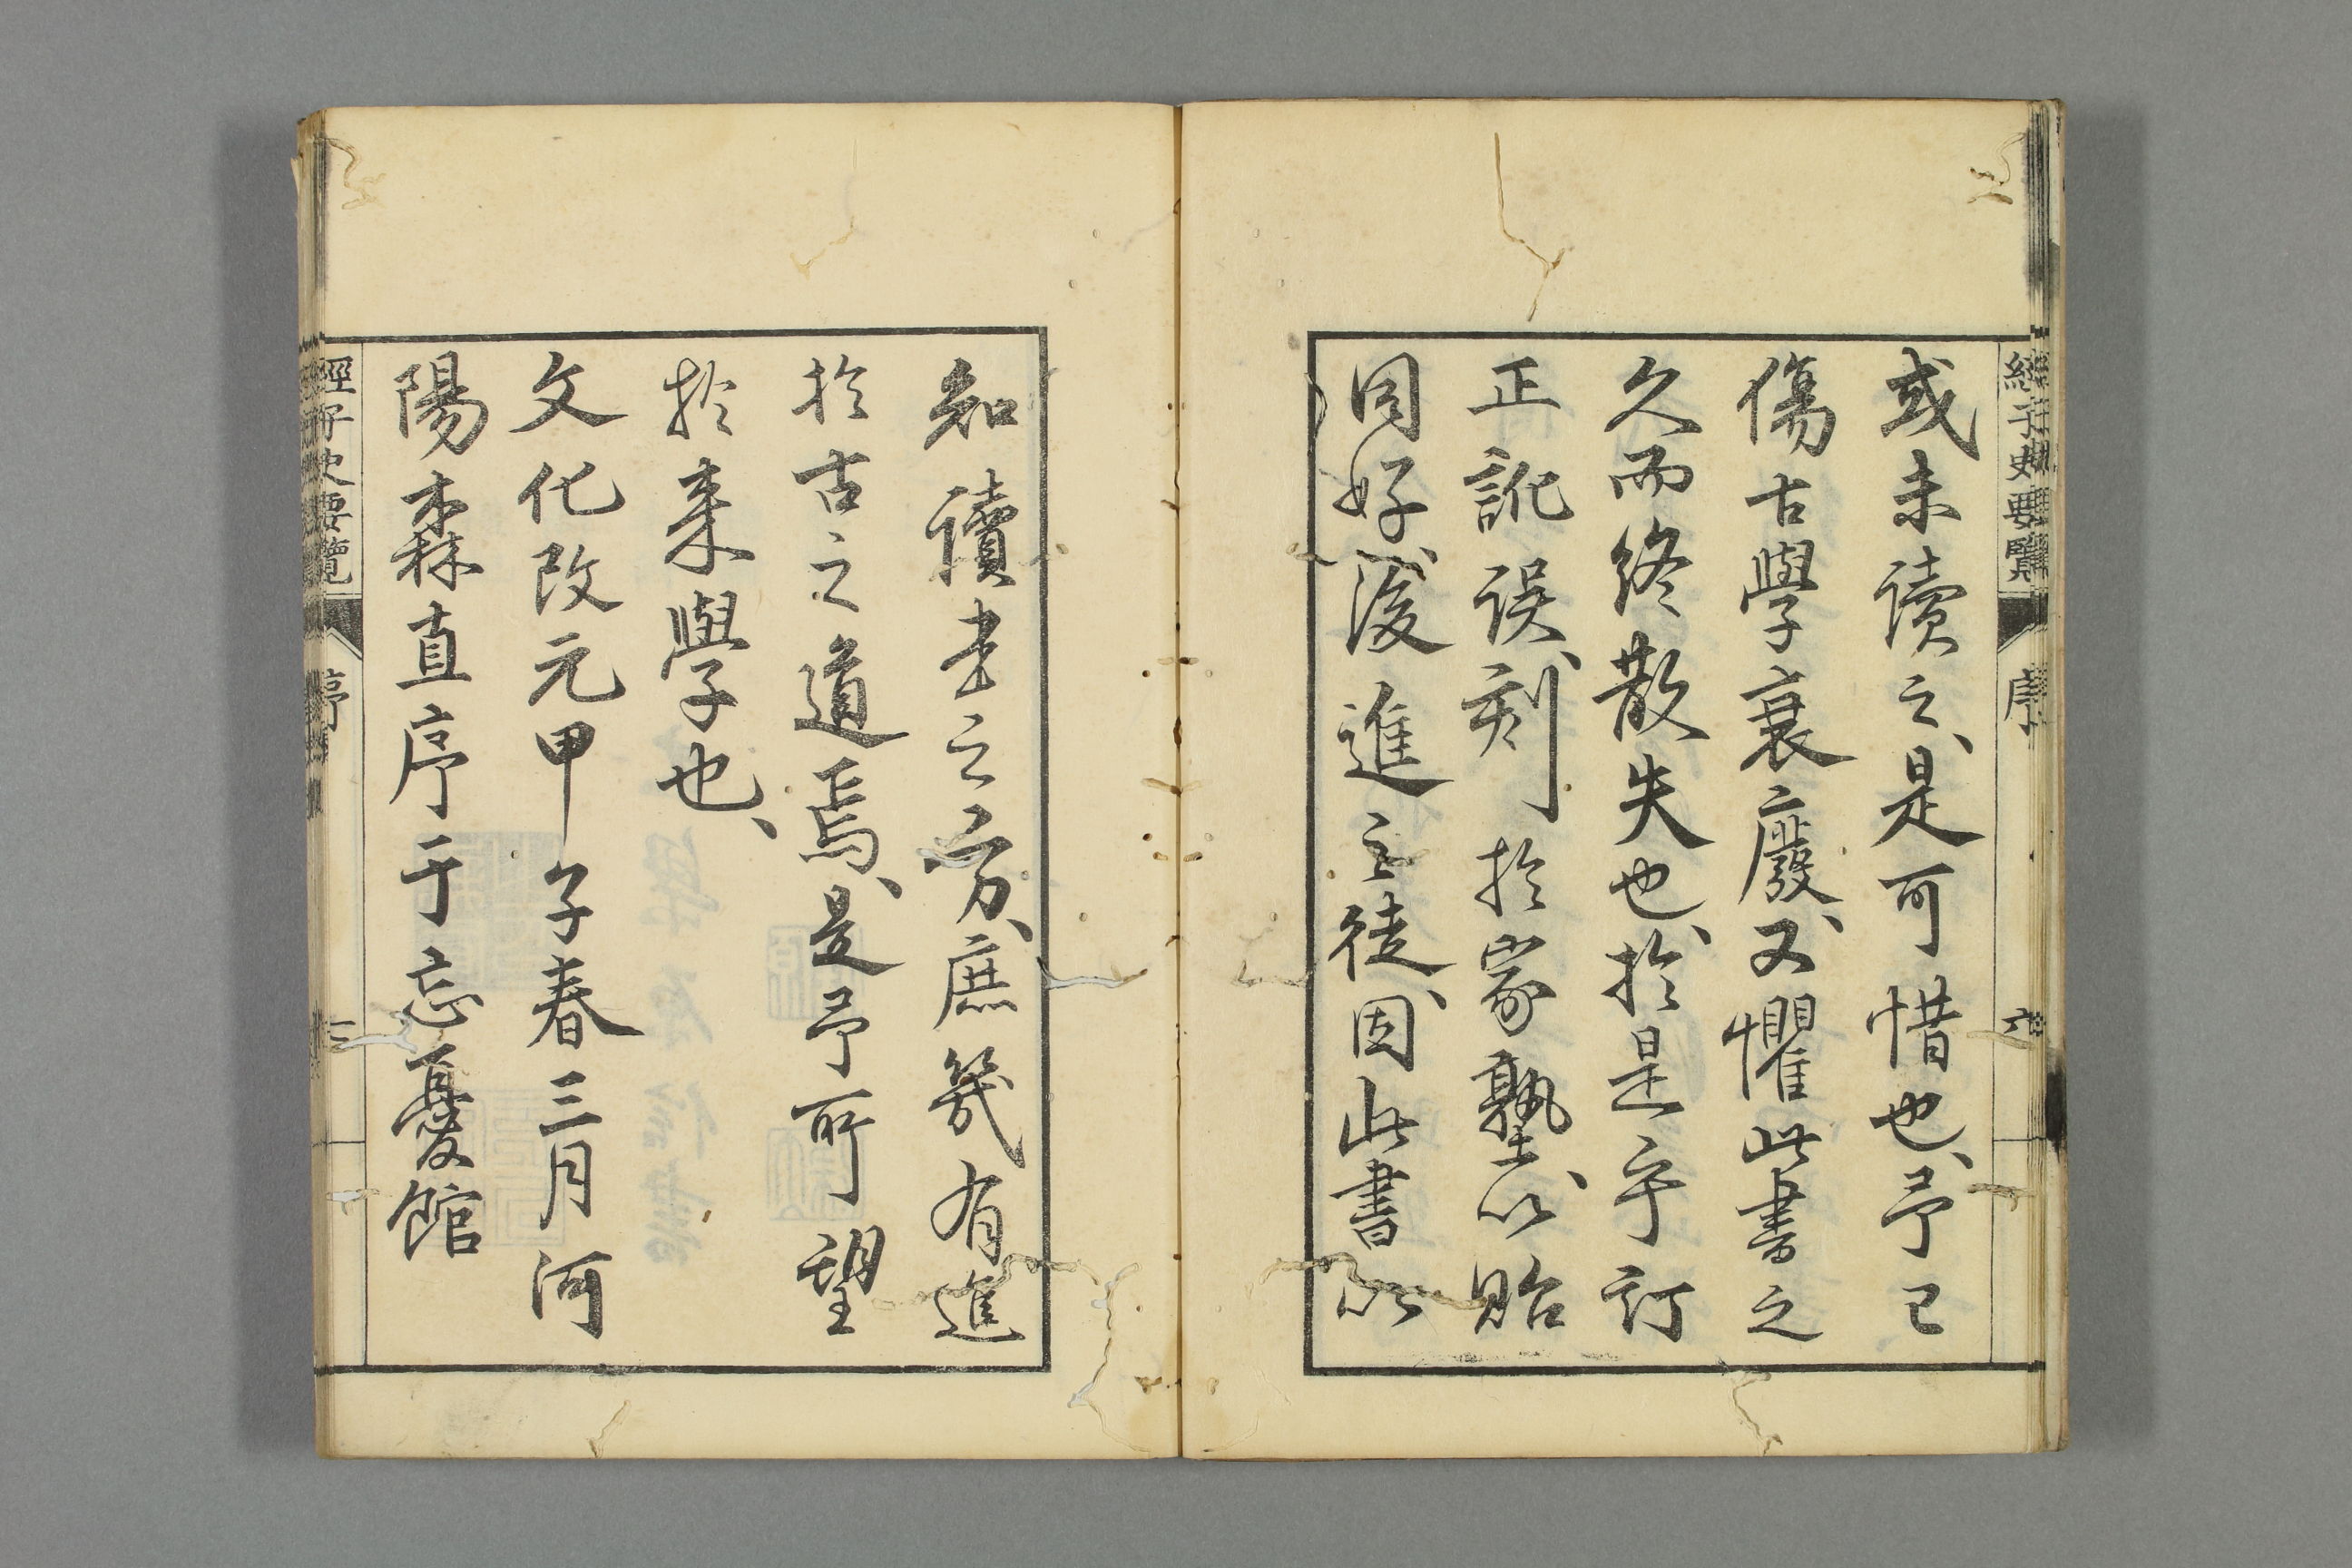 經子史要覽 序
或未讀之、是可惜也、予已
傷古學衰廢、又懼此書之
久而終散失也、於是乎訂
正訛誤、刻於家塾、以貽
同好、後進之徒、因此書以
知讀書之方、庶幾有進
於古之道焉、是予所望
於來學也、
文化改元甲子春三月河
陽森直序于忘憂館
經子史要覽 序 三